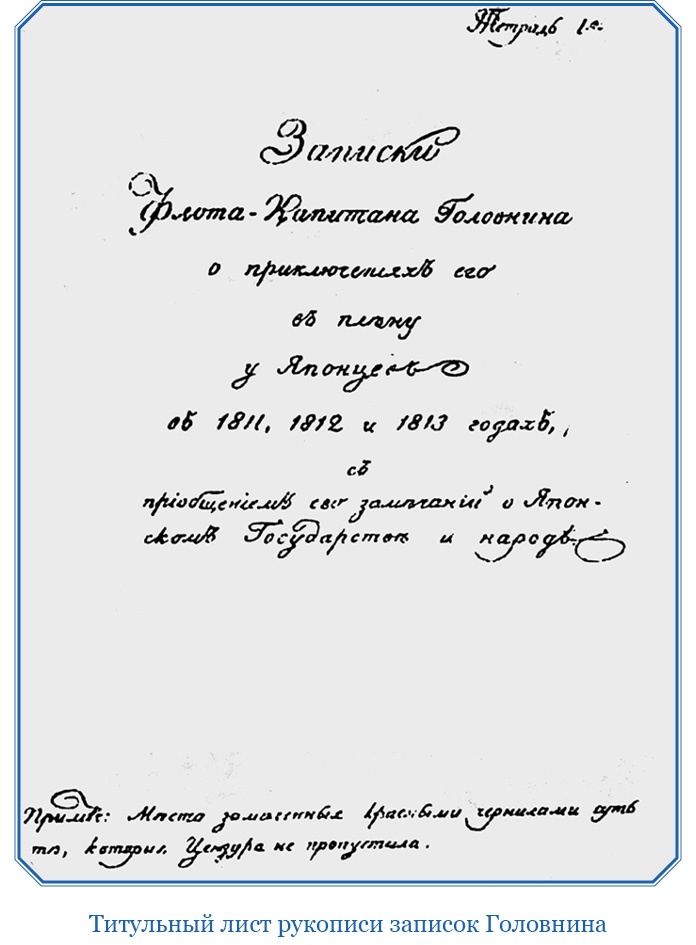 Тетрадь 1я.
Записки
Флота-Капитана Головнина
о приключенiяхъ его
въ плѣну
у Японцевъ
въ 1811, 1812 и 1813 годахъ,
съ
прiобщенiемъ его замѣчанiй о Япон-
скомъ Государствѣ и народѣ.
Примѣч: Мѣста замаранныя красными чернилами суть
тѣ, которыя Цензура не пропустила.
Титульный лист рукописи записок Головнина